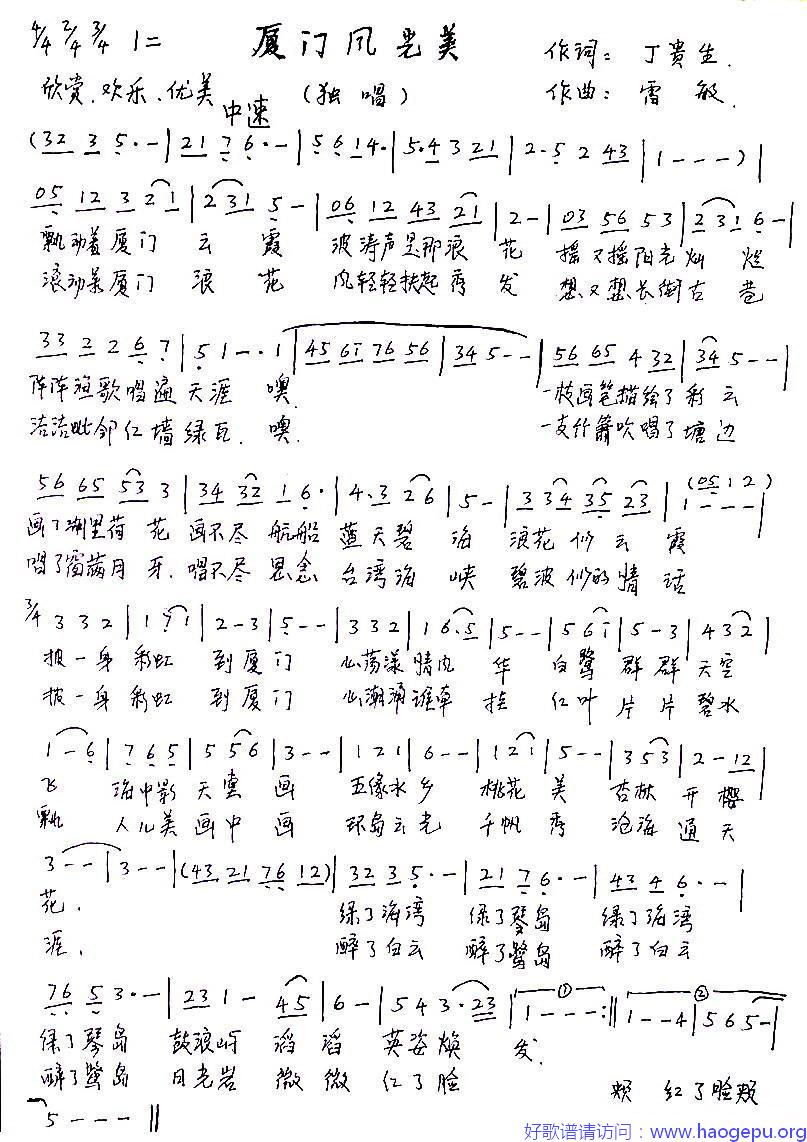 4/4 2/4 3/4 1= 厦门风光美 作词：丁贵生.
欣赏.欢乐.优美 中速 （独唱） 作曲：雷敏.
(32 3 5·-|21 7 6·-|5 6 1 4·|5·4 3 21|2·5 2 43|1---)|
05 12 3 2 1|2 31 5-|06 12 43 21|2-|03 56 53|2 31 6-|
飘动着厦门云霞 波涛声是那浪花 摇又摇阳光灿烂
滚动着厦门浪花 风轻轻扶起秀发 想又想长街古巷
33 2 2 6 7|5 1-·1|45 61 76 56|34 5--|56 65 4 32|34 5--|
阵阵渔歌唱遍天涯 噢. 一枝画笔描绘了彩云
洁洁毗邻红墙绿瓦.噢. 一支竹箫吹唱了塘边
56 65 53 3|34 32 1 6·|4·3 2 6|5-|3 34 35 23|1---| (05 12)
画了湖里荷花 画不尽航船 蓝天碧海 浪花似云霞
唱了窗满月牙.唱不尽思念 台湾海峡 碧波似的情话
3/4 3 3 2|1 1 1|2-3|5--|3 3 2|1 6·5|5--|5 6 1|5-3|4 3 2|
披一身彩虹 到厦门 心荡漾情内华 白鹭群群天空
披一身彩虹 到厦门 心潮涌 红叶片片碧水
1-6|7 6 5|5 5 6|3--|1 2 1|6--|1 2 1|5--|3 5 3|2-12|
飞 海中影天画 五缘水乡 桃花美 杏林开樱
飘 人儿美画中画 环岛云光 千帆秀 沧海通天
3--|3--|(43 21 76 12)|32 3 5·-|21 7 6·-|43 4 6·-|
花. 绿了海湾 绿了琴岛 绿了海湾
涯. 醉了白云 醉了鹭岛 醉了白云
76 5 3·-|23 1- 45|6-|5 4 3·23|① 1---:|| ② 1--4|5 6 5-|
绿了琴岛 鼓浪屿滔滔 英姿焕发.
醉了鹭岛 日光岩微微 红了脸 颊 红了脸颊
5---||
好歌谱请访问：www.haogepu.org